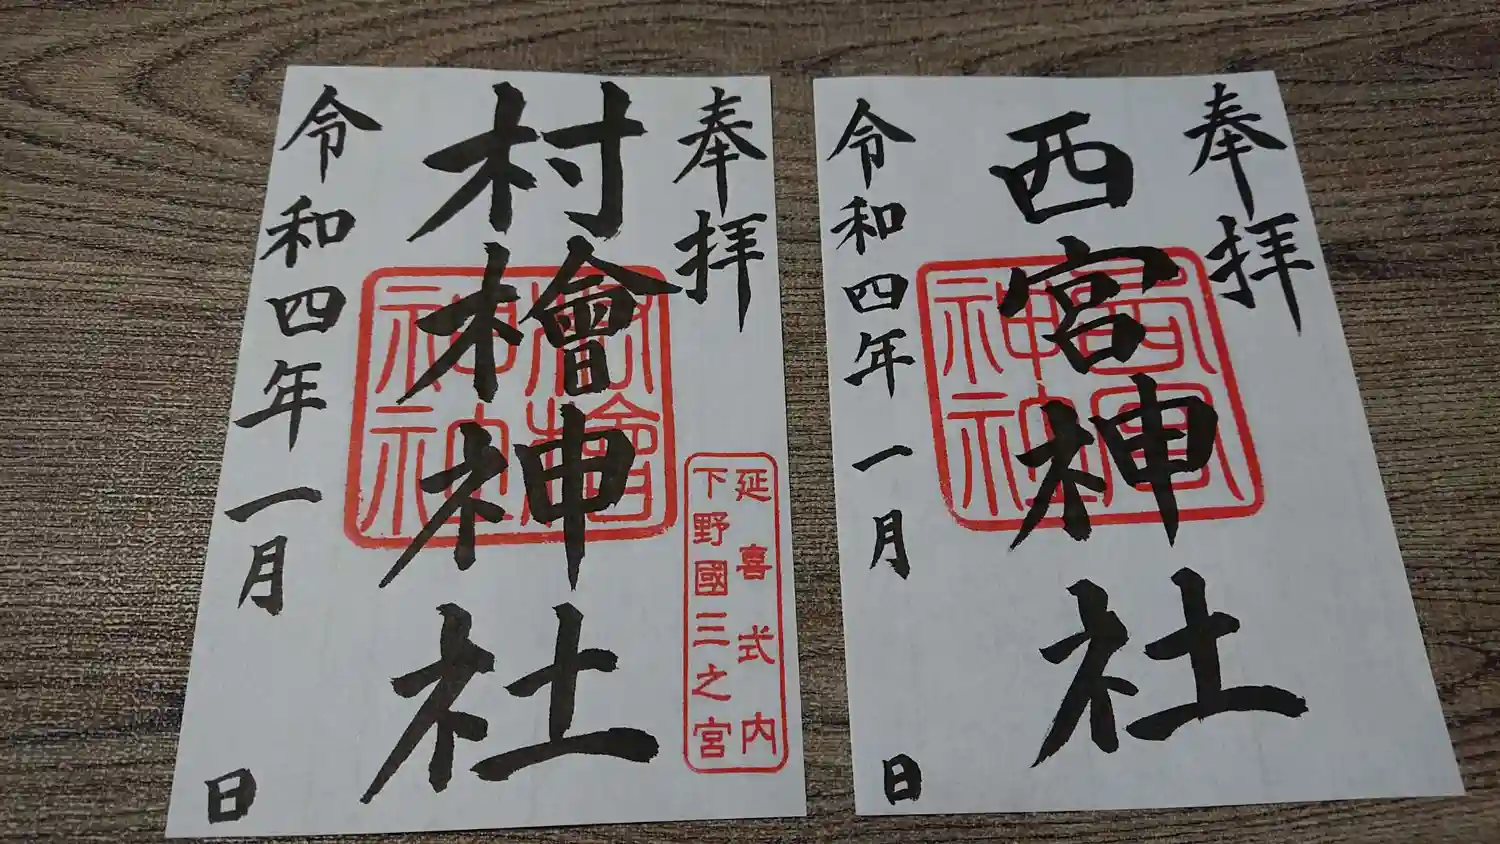 奉拝
西宮神社
令和四年一月 日
西宮神社
奉拝
村檜神社
令和四年一月 日
村檜神社
延喜式内
下野國三之宮